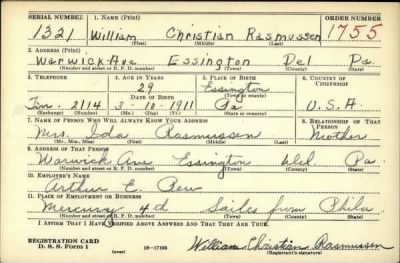 SERIAL NUMBER 1. NAME (Print) ORDER NUMBER
1321 William Christian Rasmussen 1755
(First) (Middle) (Last)
2. ADDRESS (Print)
Warwick Ave Essington Del Pa.
(Number and street or R. F. D. number) (Town) (County) (State)
3. TELEPHONE 4. AGE IN YEARS 5. PLACE OF BIRTH 6. COUNTRY OF CITIZENSHIP
29 Essington
DATE OF BIRTH (Town or county)
2114 3-10-1911 Pa U.S.A.
(Exchange) (Number) (Mo.) (Day) (Yr.) (State or country)
7. NAME OF PERSON WHO WILL ALWAYS KNOW YOUR ADDRESS 8. RELATIONSHIP OF THAT PERSON
Mrs. Ida Rasmussen Mother
(Mr., Mrs., Miss) (First) (Middle) (Last)
9. ADDRESS OF THAT PERSON
Warwick Ave Essington Del Pa.
(Number and street or R. F. D. number) (Town) (County) (State)
10. EMPLOYER'S NAME
Arthur E. Pew
11. PLACE OF EMPLOYMENT OR BUSINESS
Mercury 4d Sailes from Phila
(Number and street or R. F. D. number) (Town) (County) (State)
I AFFIRM THAT I HAVE VERIFIED ABOVE ANSWERS AND THAT THEY ARE TRUE.
REGISTRATION CARD
D. S. S. Form 1 (over) 16-17105 William Christian Rasmussen
(Registrant's signature)